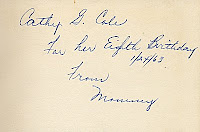 Cathy G. Cole
For her Eighth Birthday
1/24/63.
From
Mommy